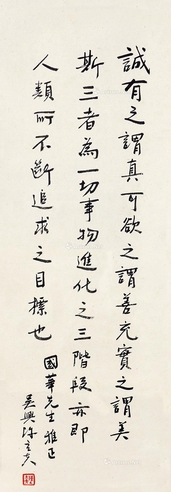 誠有之謂真可欲之謂善充實之謂美
斯三者為一切事物進化之三階段亦即
人類所不斷追求之目標也
國華先生雅正
吳興陳立夫